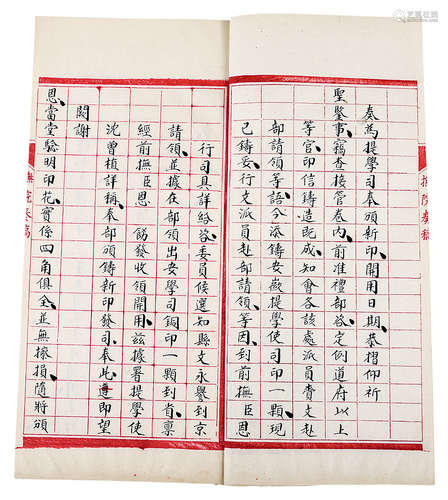 撫院奏稿
奏為提學司奉頒新印開用日期恭摺仰祈
聖鑒事竊查接管卷內前准禮部咨定例道府以上
等官印信鑄造既成知會各該處派員賚文赴
部請領等語分派鑄安徽提學使司印一顆現
已鑄妥行文派員赴部請領等因到前撫臣恩
行司具詳給咨委員候選知縣文永譽到京
請領並據在部領出安學司銅印一顆到省稟
經前撫臣恩 飭發收領開用茲據署提學使
沈曾植詳稱奉部頒鑄新印發司奉此遵即望
闕謝
恩當堂驗明印花實係四角俱全並無擦損隨將頒
撫院奏稿